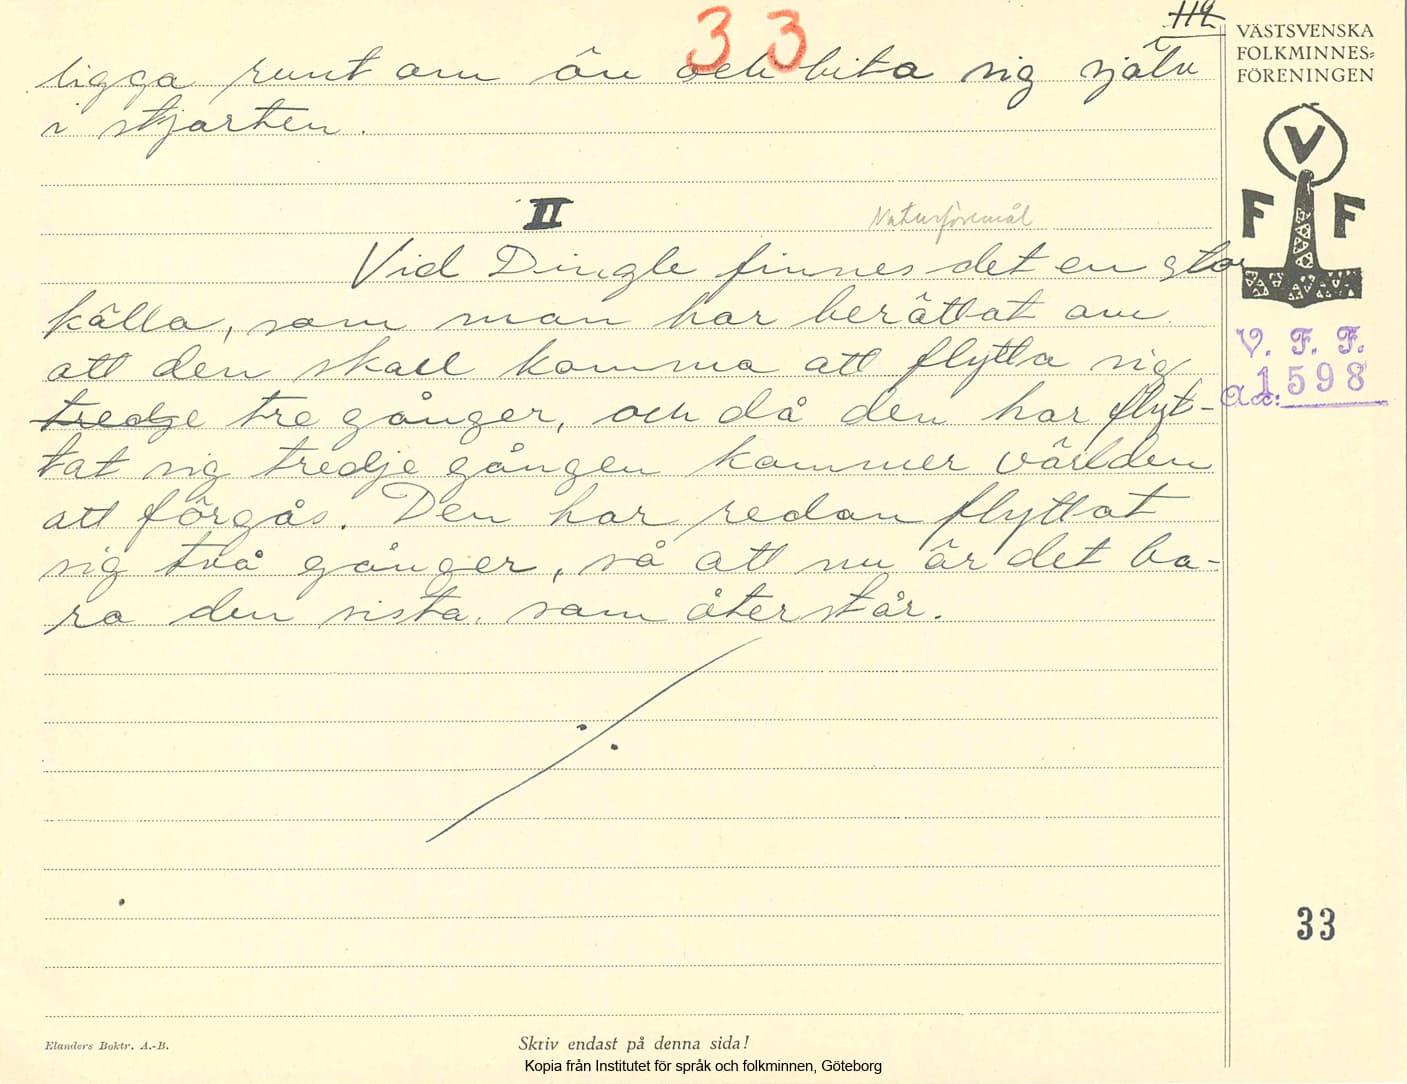 33
112
ligga runt om ön och bita sig själv
i stjärten.
II
Naturföremål
Vid Dingle finnes det en stor
källa, som man har berättat om
att den skall komma att flytta sig
tredge tre gånger, och då den har flyt-
tat sig tredje gången kommer världen
att förgås. Den har redan flyttat
sig två gånger, så att nu är det ba-
ra den sista, som återstår.
VÄSTSVENSKA
FOLKMINNES=
FÖRENINGEN
V
F F
V. F. F.
Acc: 1598
33
Elanders Boktr. A.-B.
Skriv endast på denna sida!
Kopia från Institutet för språk och folkminnen, Göteborg